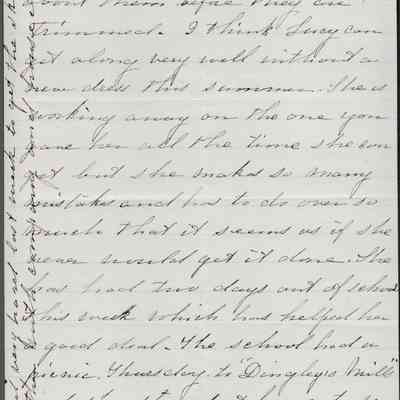 about them before they are
trimmed. I think Lucy can
get along very well without a
new dress this summer. She is
working away on the one you
gave her all the time she can
get but she makes so many
mistakes and has to do over so
much that it seems as if she
never would get it done. She
has had two days out of school
this week which has helped her
a good deal. The school had a
picnic Thursday to "Dingley's Mill"
last week to get the